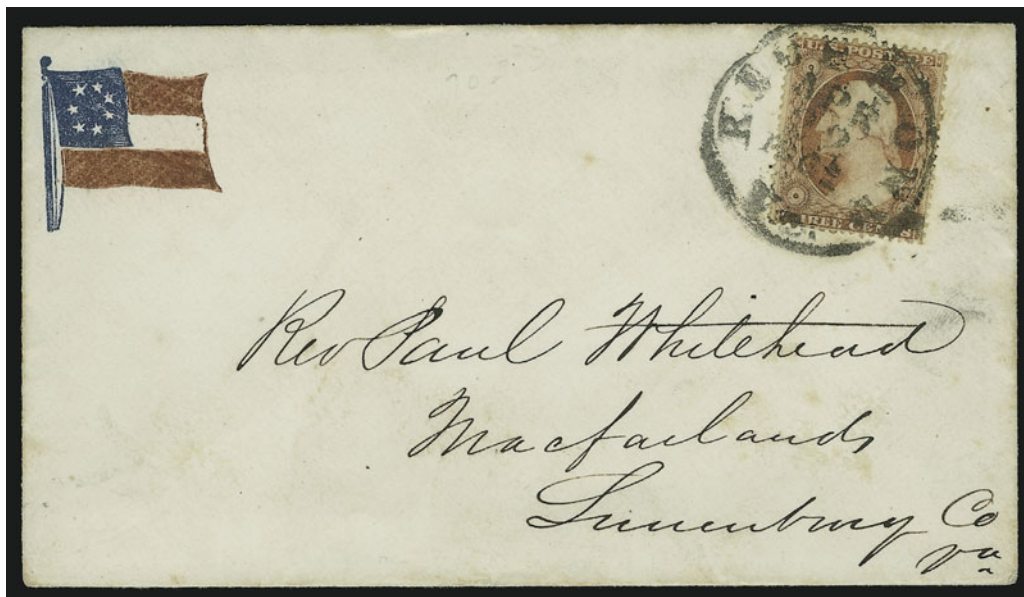 U.S. POSTAGE
RICHMOND
THREE CENTS
Rev Paul Whitehead
Macfarlands
Lunenburg Co
Va